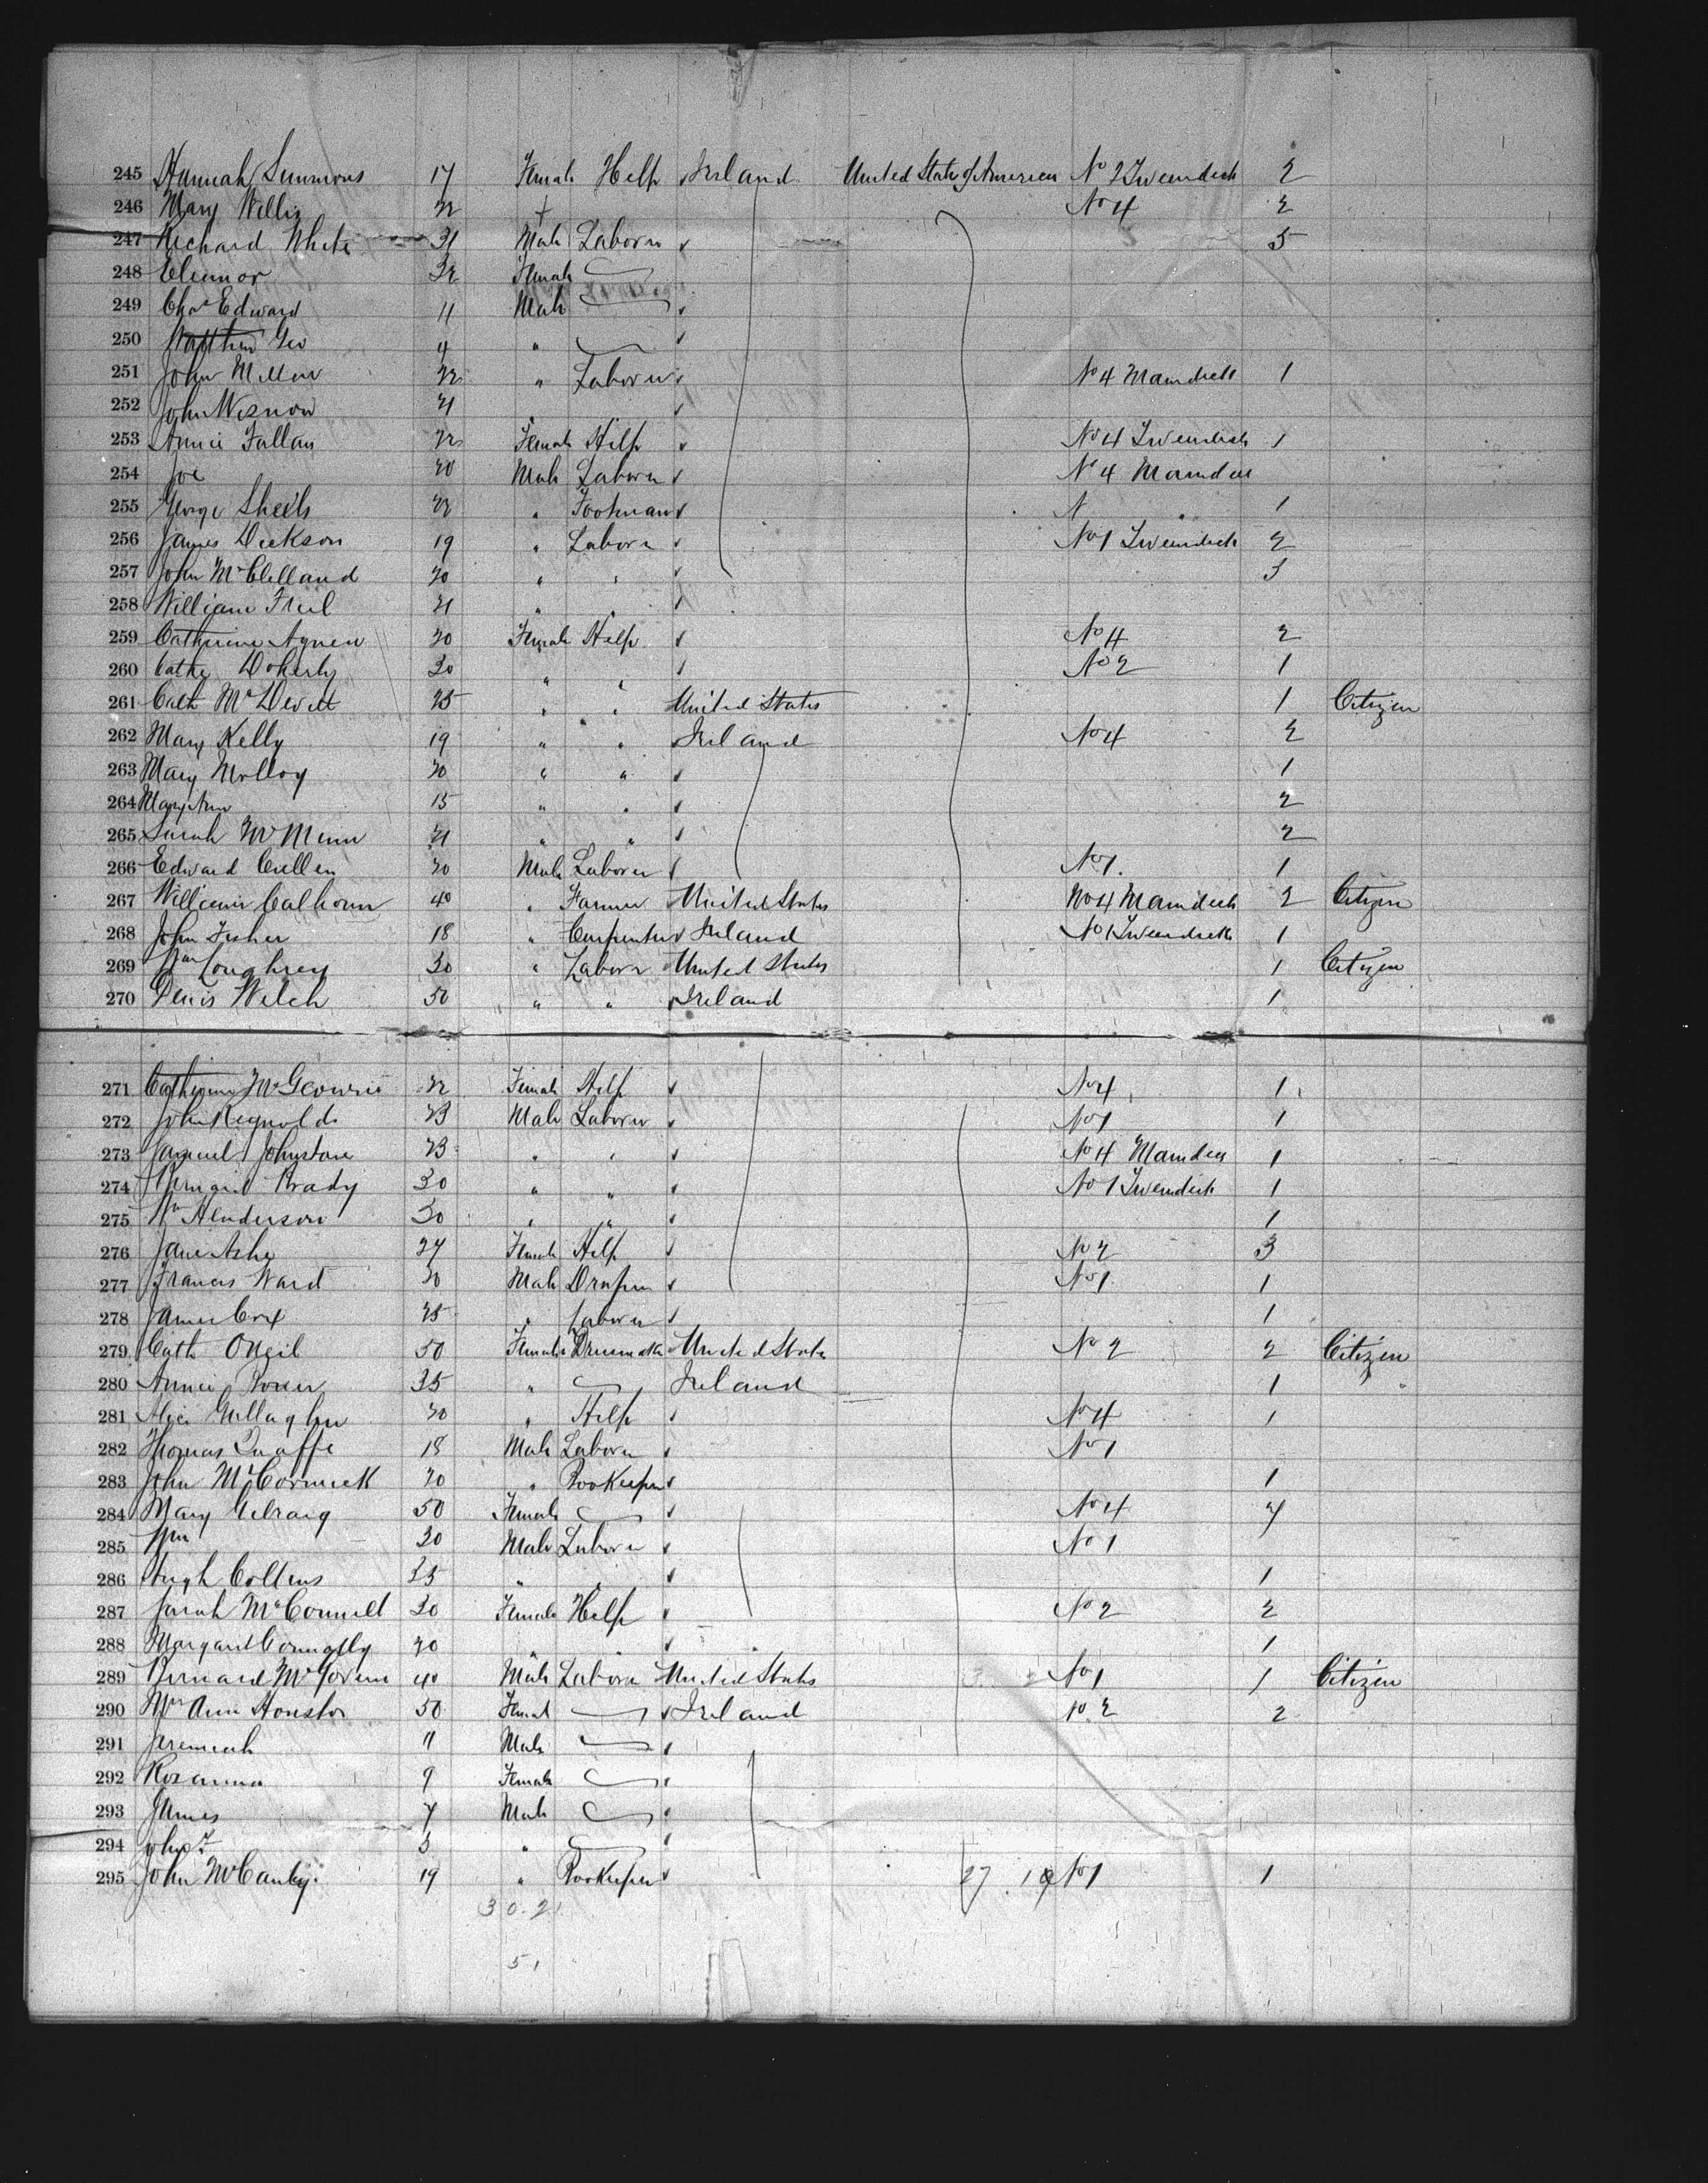 245 Hannah Simmons 17 Female Help Ireland United State of America No 2 Tweendeck 2
246 Mary Willis 22 + No 4 2
247 Richard White 31 Male Laborer 5
248 Eleanor 32 Female
249 Chas Edward 11 Male
250 Matthew Geo 4 "
251 John Millar 22 " Laborer No 4 Maindeck 1
252 John 21
253 Annie Fallan 22 Female Help No 4 Tweendeck 1
254 Joe 20 Male Laborer No 4 Maindec
255 George Sheels 22 " Footman N " 1
256 James Dickson 19 " Labore No 1 Tweendeck 2
257 John McClelland 20 " " 3
258 William Friel 21 " "
259 Catherine Agnew 20 Female Help No 4 2
260 Cathe Doherty 30 " " No 2 1
261 Cath McDevitt 25 " " United States 1 Citizen
262 Mary Kelly 19 " " Ireland No 4 2
263 Mary Molloy 20 " " 1
264 Mary Ann 15 " " 2
265 Sarah 21 " " 2
266 Edward Cullen 20 Male Laborer No 1. 1
267 William Calhoun 40 " Farmer United States No 4 Maindeck 2 Citizen
268 John Fisher 18 " Carpenter Ireland No 1 Tweendeck 1
269 Wm Loughrey 30 " Labore United States 1 Citizen
270 Denis Welch 50 " " Ireland 1
271 Catherine 22 Female Help No 4 1
272 John Reynolds 23 Male Laborer No 1 1
273 Samuel Johnstone 23 " " No 4 Maindec 1
274 Bernard Brady 30 " " No 1 Tweendeck 1
275 Wm Henderson 30 " " 1
276 Jane Ashe 27 Female Help No 2 3
277 Francis Ward 20 Male Draper No 1 1
278 James Cox 25 " Laborer 1
279 Cath ONeil 50 Female Dressmaker United State No 2 2 Citizen
280 Annie 35 " Ireland 1
281 Alice Gallagher 20 " Help No 4 1
282 Thomas Quaffe 18 Male Laborer No 1
283 John McCormick 20 " Bookeeper 1
284 Mary Gilraig 50 Female No 4 7
285 Wm 20 Male Laborer No 1
286 Hugh Collins 23 " " 1
287 Sarah McConnell 20 Female Help No 2 2
288 Margaret Connolly 20 " " 1
289 Bernard McGovern 40 Male Labore United States No 1 1 Citizen
290 Mrs Ann Houston 50 Femal Ireland No 2 2
291 Jeremiah 11 Male
292 Rosanna 9 Female
293 James 7 Male
294 John 3 "
295 John 19 " Bookeeper 27 . 19 No 1 1
30.21
51